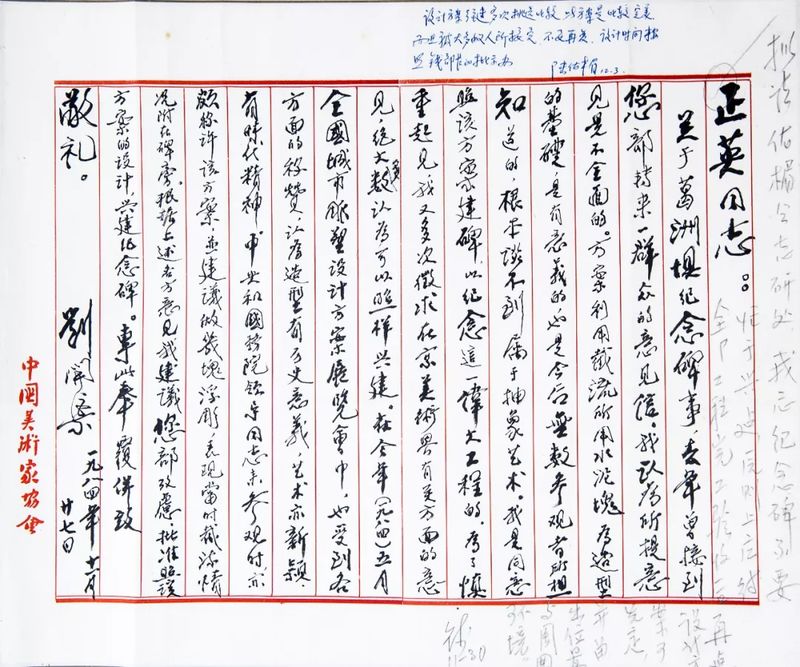 设计方案已建多次挑选比较，此方案是比较完美
而且被大多数人所接受，不及再变，设计时间按
照钱部长的批示办
陆佑楣 12.3.
正英同志：
关于葛洲坝纪念碑事，去年曾接到
您部转来一群众的意见信。我认为所提意
见是不全面的。方案利用截流所用水泥块为造型
的基础，是有意义的也是今后无数参观者所想
知道的，根本谈不到属于抽象艺术。我是同意
照该方案建碑，以纪念这一伟大工程的。为了慎
重起见，我又多次征求在京美术界有关方面的意
见，绝大多数认为可以照样兴建。在今年（一九八四）五月
全国城市雕塑设计方案展览会中，也受到各
方面的称赞，认为造型有历史意义，艺术亦新颖，
有时代精神，中央和国务院领导同志来参观时亦
颇称许该方案，并建议做几块浮雕，表现当时截流情
况附在碑旁。根据上述各方意见我建议您部考虑，批准照该
方案的设计，兴建纪念碑。专此奉覆并致
敬礼。
刘开渠 一九八四年十一月
廿七日
中国美术家协会
拟请佑楣同志研处，我意纪念碑不要
急于兴建，原则上应结
全部工程完工验收后再
钱
11-30